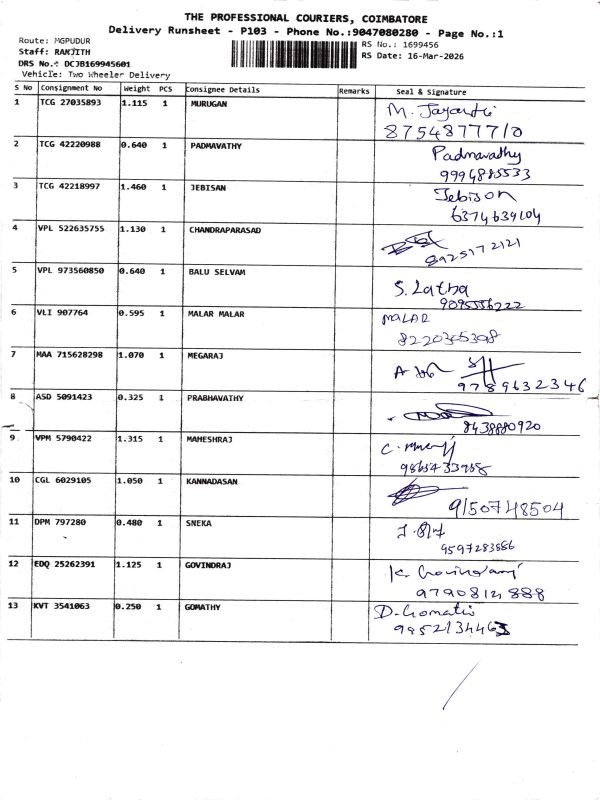 THE PROFESSIONAL COURIERS, COIMBATORE
Delivery Runsheet - P103 - Phone No.:9047080280 - Page No.:1
Route: MGPUDUR
Staff: RANJITH
DRS No.: DCJB169945601
Vehicle: Two Wheeler Delivery
RS No.: 1699456
RS Date: 16-Mar-2026
S No Consignment No Weight PCS Consignee Details Remarks Seal & Signature
1 TCG 27035893 1.115 1 MURUGAN M. Jayanthi
8754877710
2 TCG 42220988 0.640 1 PADMAVATHY Padmavathy
9994885533
3 TCG 42218997 1.460 1 JEBISAN Jebison
6374634104
4 VPL 522635755 1.130 1 CHANDRAPARASAD
8925172121
5 VPL 973560850 0.640 1 BALU SELVAM S. Latha
9095556222
6 VLI 907764 0.595 1 MALAR MALAR MALAR
8220365398
7 MAA 715628298 1.070 1 MEGARAJ
9789632346
8 ASD 5091423 0.325 1 PRABHAVATHY
8438880920
9 VPM 5790422 1.315 1 MAHESHRAJ
10 CGL 6029105 1.050 1 KANNADASAN
9150748504
11 DPM 797280 0.480 1 SNEKA
9597283886
12 EDQ 25262391 1.125 1 GOVINDRAJ K. Govindaraj
9790812888
13 KVT 3541063 0.250 1 GOMATHY D. Gomathi
9952134463